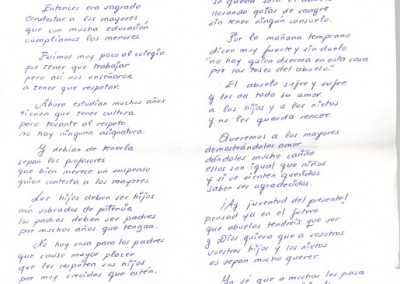 Entonces era sagrado
contestar a los mayores
que con mucha educación
cumplíamos los menores.
Fuimos muy poco al colegio
por tener que trabajar
pero así nos enseñaron
a tener que respetar.
Ahora estudian muchos años
tienen que tener cultura
pero tocante al respeto
no hay ninguna asignatura.
Y debían de tenerla
según los profesores
que bien merece un suspenso
quien contesta a los mayores
Los hijos deben ser hijos
aún sobrados de
los padres deben ser padres
por muchos años que tengan.
No hay cosa para los padres
que cause mayor placer
que les respeten sus hijos
por muy crecidos que estén.
se queda solo el abuelo
llorando gotas de sangre
sin tener ningún consuelo.
Por la mañana temprano
dicen muy fuerte y sin duelo
"no hay quien duerma en esta casa
por las toses del abuelo."
El abuelo sufre y sufre
y les da todo su amor
a los hijos y a los nietos
y no les guarda rencor
Queremos a los mayores
demostrándoles amor
dándoles mucho cariño
ellos son igual que niños
y si se sienten queridos
saben ser agradecidos.
¡Ay juventud del presente!
pensad ya en el futuro
que abuelos tendréis que ser
y Dios quiera que a vosotros
vuestros hijos y los nietos
os sepan mucho querer.
Yo sé que a muchos les pasa